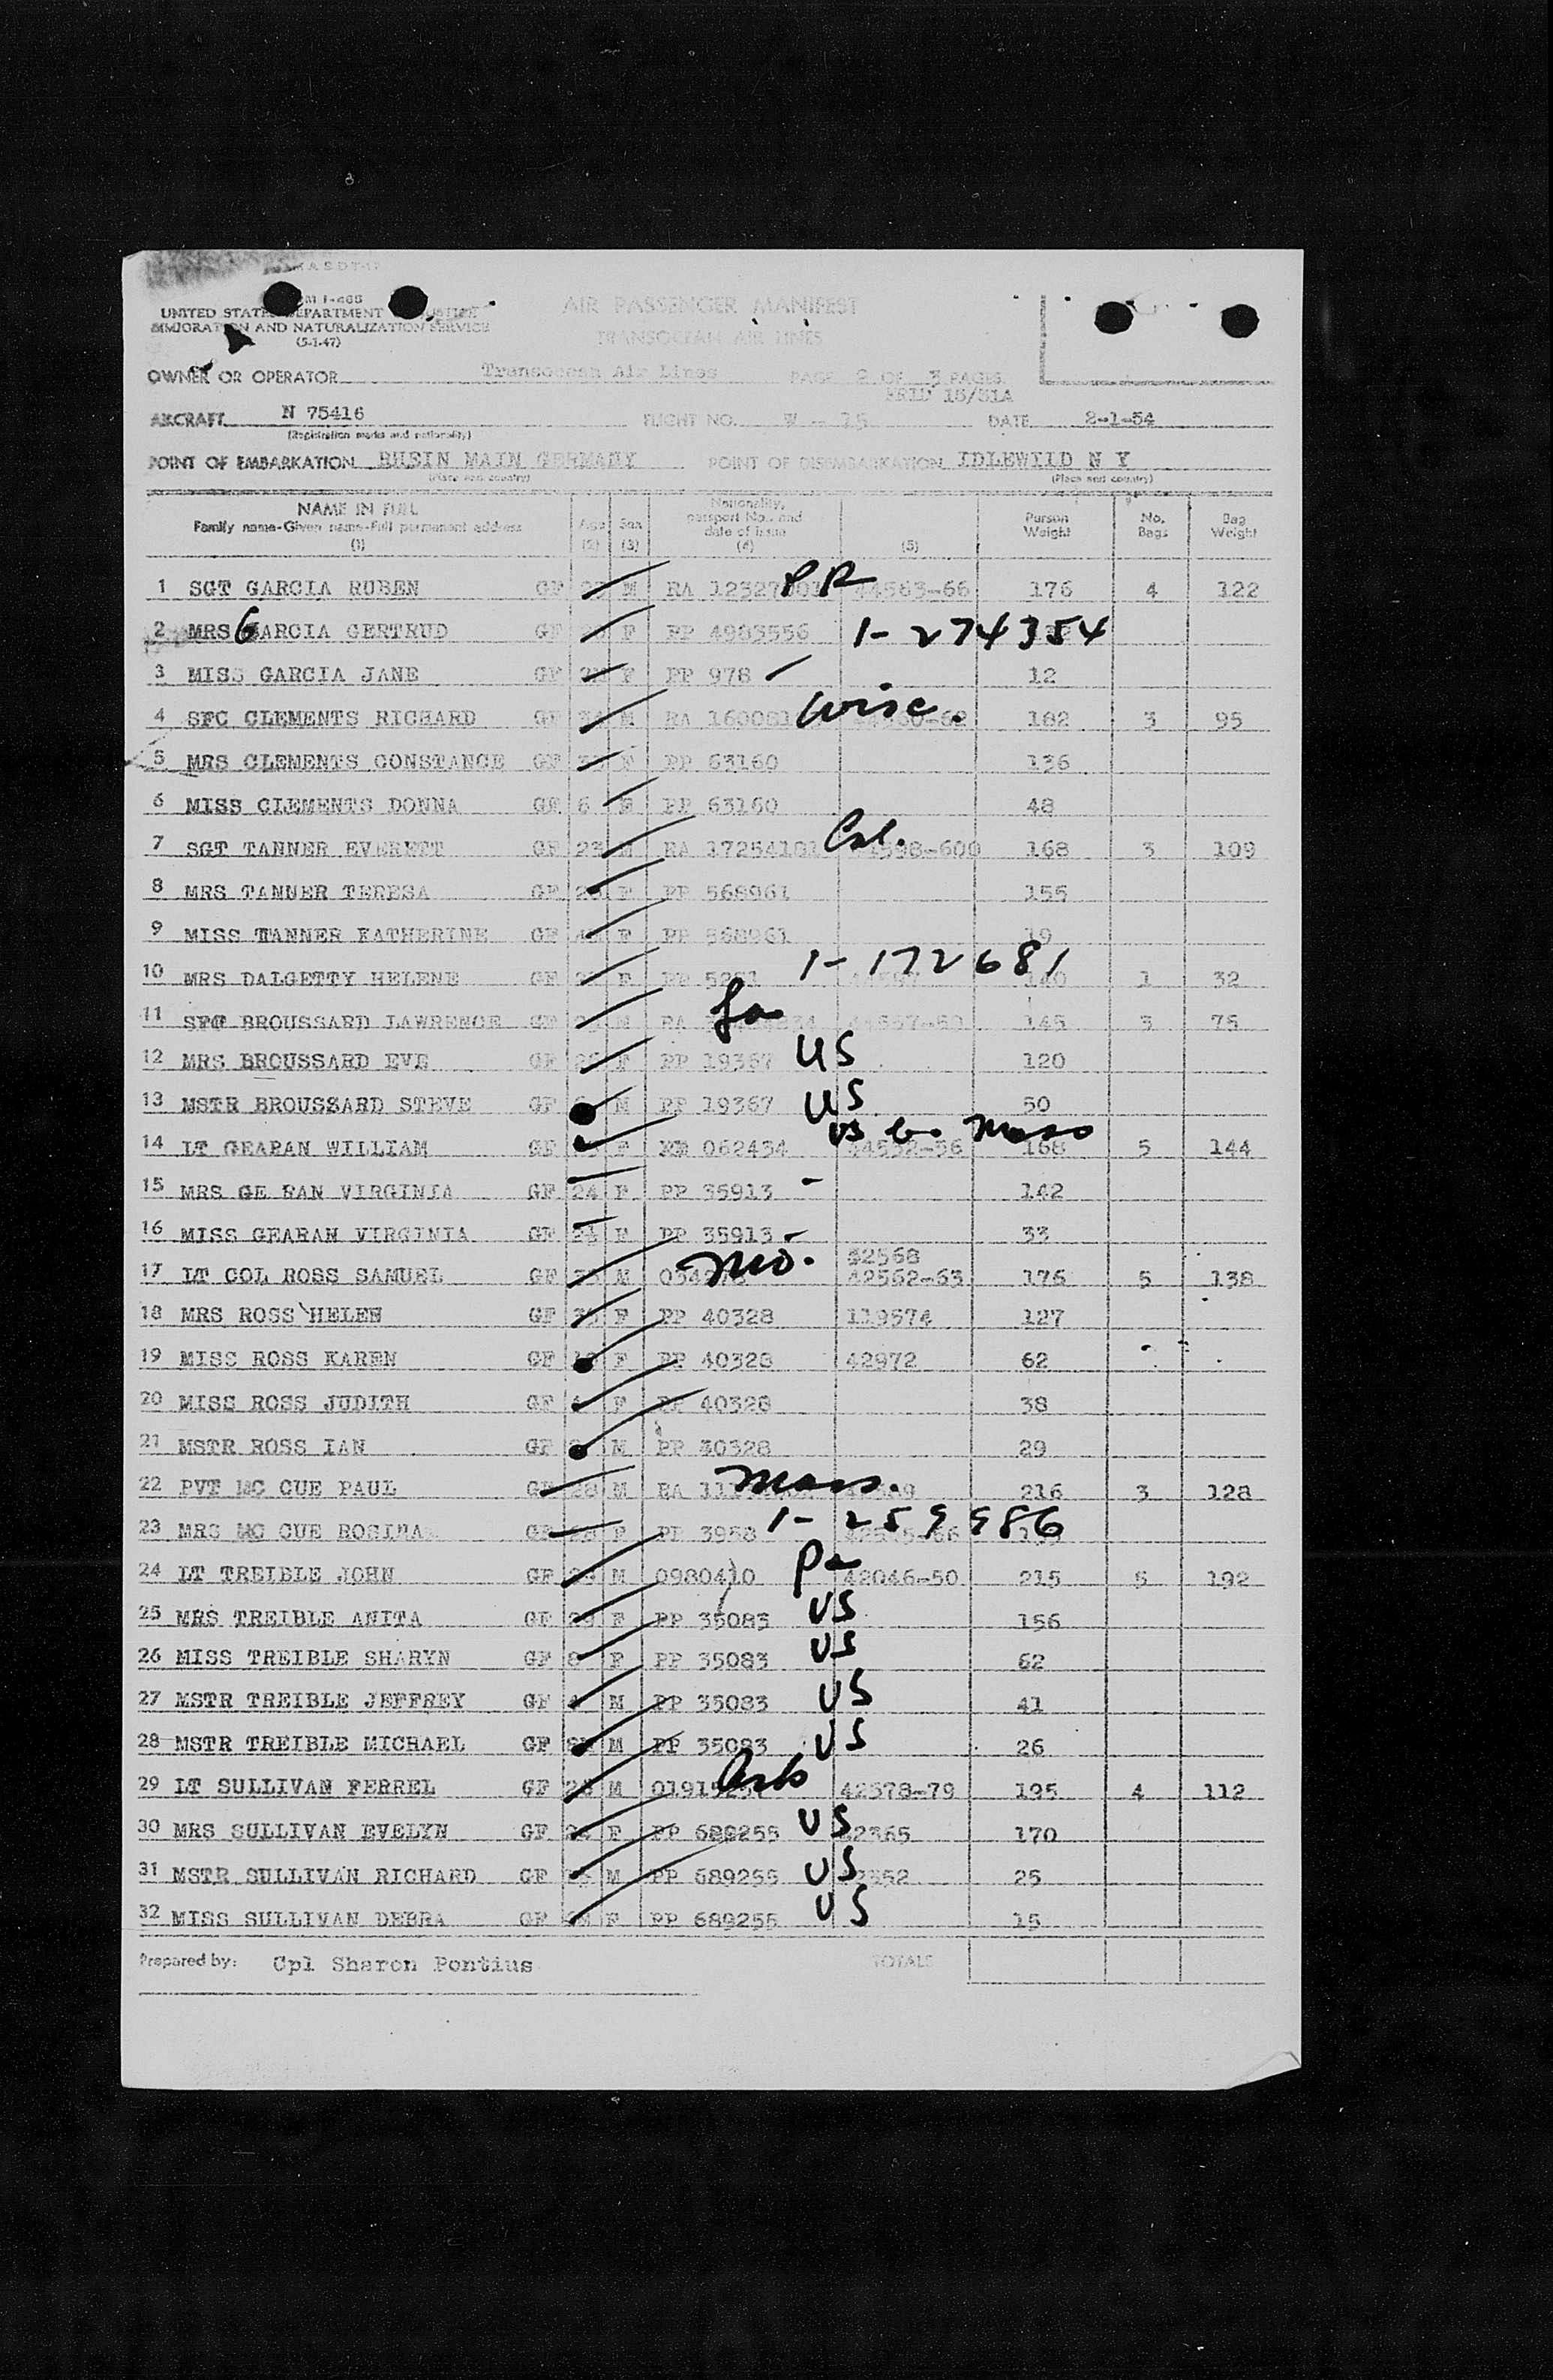 UNITED STATES DEPARTMENT OF JUSTICE
IMMIGRATION AND NATURALIZATION SERVICE
(5-1-47)
AIR PASSENGER MANIFEST
TRANSOCEAN AIR LINES
OWNER OR OPERATOR Transocean Air Lines PAGE 2 OF 3 PAGES
AIRCRAFT N 75416 FLIGHT NO. 15 DATE 2-1-54
(Registration marks and nationality)
POINT OF EMBARKATION RHEIN MAIN GERMANY POINT OF DISEMBARKATION IDLEWILD N Y
(Place and country) (Place and country)
NAME IN FULL
Family name-Given name-Full permanent address
(1)
Age
(2)
Sex
(3)
Nationality,
passport No., and
date of issue
(4)
(5)
Person
Weight
No.
Bags
Bag
Weight
1 SGT GARCIA RUBEN GF M RA PR 44563-66 176 4 122
2 MRS GARCIA GERTRUD GF F PP 4983556 1-274354
3 MISS GARCIA JANE GF F PP 978 12
4 SFC CLEMENTS RICHARD GF M RA Wisc. 182 3 95
5 MRS CLEMENTS CONSTANCE GF F PP 63160 136
6 MISS CLEMENTS DONNA GF 6 F PP 63160 48
7 SGT TANNER EVERETT GF 23 M RA 17254181 Cal. 168 3 109
8 MRS TANNER TERESA GF F PP 568961 155
9 MISS TANNER KATHERINE GF F PP 568961 19
10 MRS DALGETTY HELENE GF F PP 1-172681 140 1 32
11 SFC BROUSSARD LAWRENCE GF M RA La 145 3 75
12 MRS BROUSSARD EVE GF F PP 19367 US 120
13 MSTR BROUSSARD STEVE GF M PP 19367 US 50
14 LT GEARAN WILLIAM GF F 062434 US Mass 44552-56 168 5 144
15 MRS GE RAN VIRGINIA GF 24 F PP 35913 142
16 MISS GEARAN VIRGINIA GF F PP 35913 33
17 LT COL ROSS SAMUEL GF M Mo. 42568 42562-63 176 5 138
18 MRS ROSS HELEN GF F PP 40328 119574 127
19 MISS ROSS KAREN GF F PP 40328 42972 62
20 MISS ROSS JUDITH GF F PP 40328 38
21 MSTR ROSS IAN GF M PP 40328 29
22 PVT MC CUE PAUL GF 28 M RA Mass. 216 3 128
23 MRS MC CUE ROSINA GF F PP 3958 1-259986
24 LT TREIBLE JOHN GF M 0980410 Pa 42046-50 215 5 192
25 MRS TREIBLE ANITA GF F PP 35083 US 156
26 MISS TREIBLE SHARYN GF 8 F PP 35083 US 62
27 MSTR TREIBLE JEFFREY GF M PP 35083 US 41
28 MSTR TREIBLE MICHAEL GF M PP 35083 US 26
29 LT SULLIVAN FERREL GF M Ark 42578-79 195 4 112
30 MRS SULLIVAN EVELYN GF F PP 689255 US 42365 170
31 MSTR SULLIVAN RICHARD GF M PP 689255 US 25
32 MISS SULLIVAN DEBRA GF F PP 689255 US 15
Prepared by: Cpl Sharon Pontius TOTALS